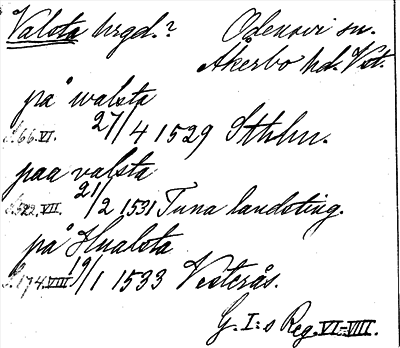 Valsta hrgd.? Odensvi sn.
Åkerbo hd. Vst.
på walsta
S. 66. VI. 27/4 1529 Sthlm.
paa valsta
S. 522. VII. 21/2 1531 Tuna landsting.
på Hualsta
S. 174. VIII. 19/1 1533 Vesterås.
G. I:s Reg. VI-VIII.